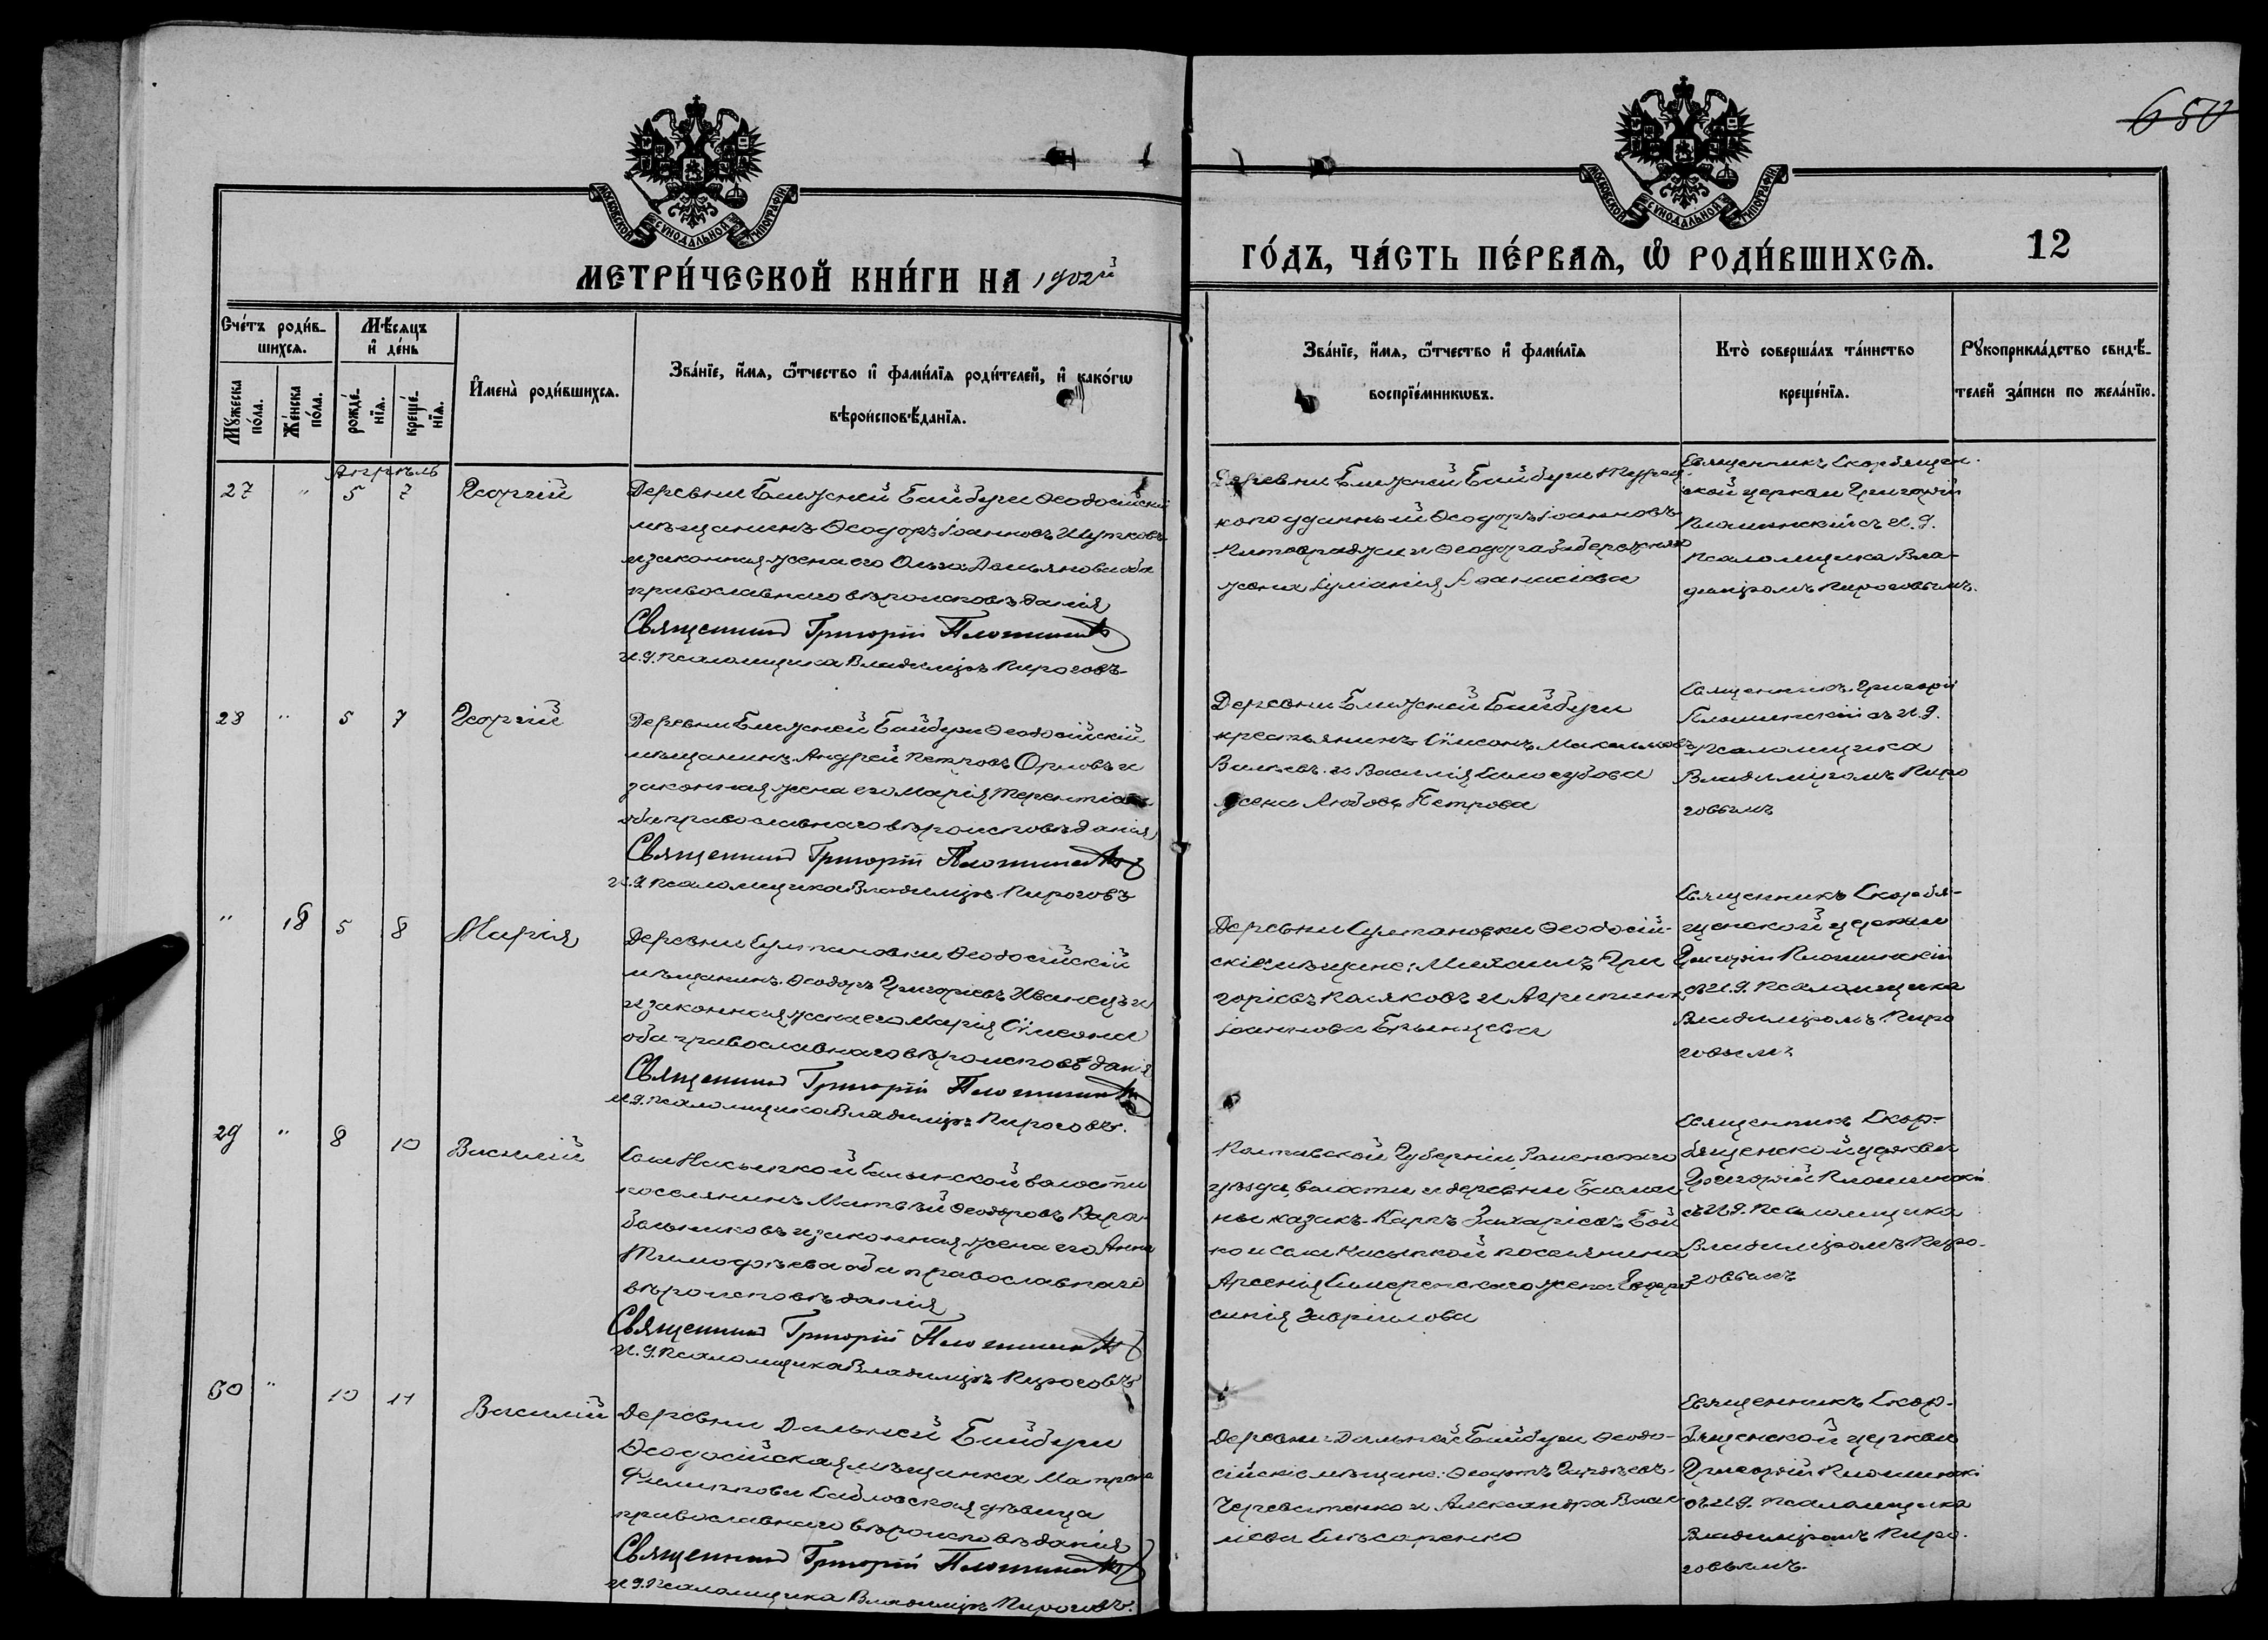 650
МОСКОВСКОЙ СѴНОДАЛЬНОЙ ТИПОГРАФІИ
МОСКОВСКОЙ СѴНОДАЛЬНОЙ ТИПОГРАФІИ
МЕТРИ́ЧЕСКОЙ КНИ́ГИ НА 1902й
ГО́ДЪ, ЧА́СТЬ ПЕ́РВАѦ, Ѡ҆ РОДИ́ВШИХСѦ.
12
Сче́тъ роди́в-
шихсѧ.
Мꙋ́жеска
по́ла.
Же́нска
по́ла.
Мѣ́сѧцъ
и҆ де́нь
рожде́-
нїѧ.
креще́-
нїѧ.
И҆мена̀ роди́вшихсѧ.
Зва́нїе, и҆́мѧ, ѻ҆́тчество и҆ фами́лїѧ роди́телей, и҆ како́гѡ
вѣроисповѣ́данїѧ.
Зва́нїе, и҆́мѧ, ѻ҆́тчество и҆ фами́лїѧ
воспрїе́мникѡвъ.
Кто̀ соверша́лъ та́инство
креще́нїѧ.
Рꙋкоприкла́дство свидѣ́-
телей за́писи по жела́нїю.
Апрѣль
27 " 5 7 Георгій
Деревни Ближней Байбуги Ѳеодосійскій
мѣщанинъ Ѳеодоръ Іоанновъ Шутковъ
и законная жена его Ольга Дамьянова оба
православнаго вѣроисповѣданія
Священник Григорій Плошинскій
И.д. псаломщика Владиміръ Пироговъ
Деревни Ближней Байбуги Турец-
коподданный Ѳеодоръ Іоанновъ
и Ѳеодора
жена Іуліанія Аѳанасіева
Священникъ Скорбящен-
ской церкви Григорій
Плошинскій съ И.д.
псаломщика Вла-
диміромъ Пироговымъ.
28 " 5 7 Георгій
Деревни Ближней Байбуги Ѳеодосійскій
мѣщанинъ Андрей Петровъ Орловъ и
законная жена его Марія Терентіева
оба православнаго вѣроисповѣданія
Священник Григорій Плошинскій
И.д. псаломщика Владиміръ Пироговъ
Деревни Ближней Байбуги
крестьянинъ Сѵмеонъ Максимовъ
и Василія
жена Любовь Петрова
Священникъ Григорій
Плошинскій съ И.д.
псаломщика
Владиміромъ Пиро
говымъ
" 18 5 8 Марія
Деревни Султановки Ѳеодосійскій
мѣщанинъ Ѳеодоръ Григорьевъ Иванецъ и
и законная жена его Марія Сѵмеонова
оба православнаго вѣроисповѣданія
Священник Григорій Плошинскій
И.д. псаломщика Владиміръ Пироговъ.
Деревни Султановки Ѳеодосій-
скіе мѣщане: Михаилъ Гри
горіевъ Касяковъ и Агрипина
Іоаннова Брынцева
Священникъ Скорбя-
щенской церкви
Григорій Плошинскій
съ И.д. псаломщика
Владиміромъ Пиро
говымъ
29 " 8 10 Василій
Села Насыпкой Салынской волости
поселянинъ Матвѣй Ѳеодоровъ Кара-
бельниковъ и законная жена его Анна
Тимоѳеева оба православнаго
вѣроисповѣданія
Священник Григорій Плошинскій
И.д. псаломщика Владиміръ Пироговъ
Полтавской Губерніи Роменскаго
уѣзда, волости и деревни Басма
ны казакъ Карпъ Захаріевъ Бой
ко и села Насыпкой поселянина
Арсенія жена Евфро
синія Гавріилова
Священникъ Скор-
бященской церкви
Григорій Плошинскій
съ И.д. псаломщика
Владиміромъ Пиро-
говымъ
30 " 10 11 Василій
Деревни Дальней Байбуги
Ѳеодосійская мѣщанка Матрона
Филиппова дѣвица
православнаго вѣроисповѣданія
Священник Григорій Плошинскій
И.д. псаломщика Владиміръ Пироговъ.
Деревни Дальней Байбуги Ѳеодо-
сійскіе мѣщане: Ѳеодотъ
Череватенко и Александра Васи
ліева
Священникъ Скор-
бященской церкви
Григорій Плошинскі
съ И.д. псаломщика
Владиміромъ Пиро-
говымъ.